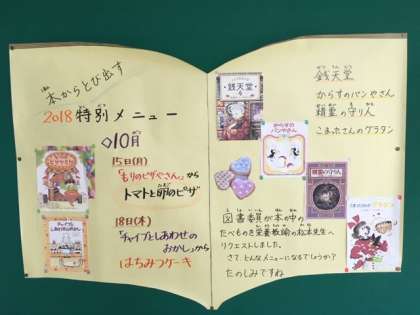 本からとび出す
2018 特別メニュー
◇10月
15日(月)
「もりのピザやさん」から
トマトと卵のピザ
18日(木)
「チャイブとしあわせの
おかし」から
はちみつケーキ
銭天堂
からすのパンやさん
精霊の守り人
こまったさんのグラタン
銭天堂
からすの
パンやさん
精霊の守り人
図書委員が本の中の
たべものを栄養教諭の松本先生へ
リクエストしました。
さて、どんなメニューになるでしょうか？
たのしみですね